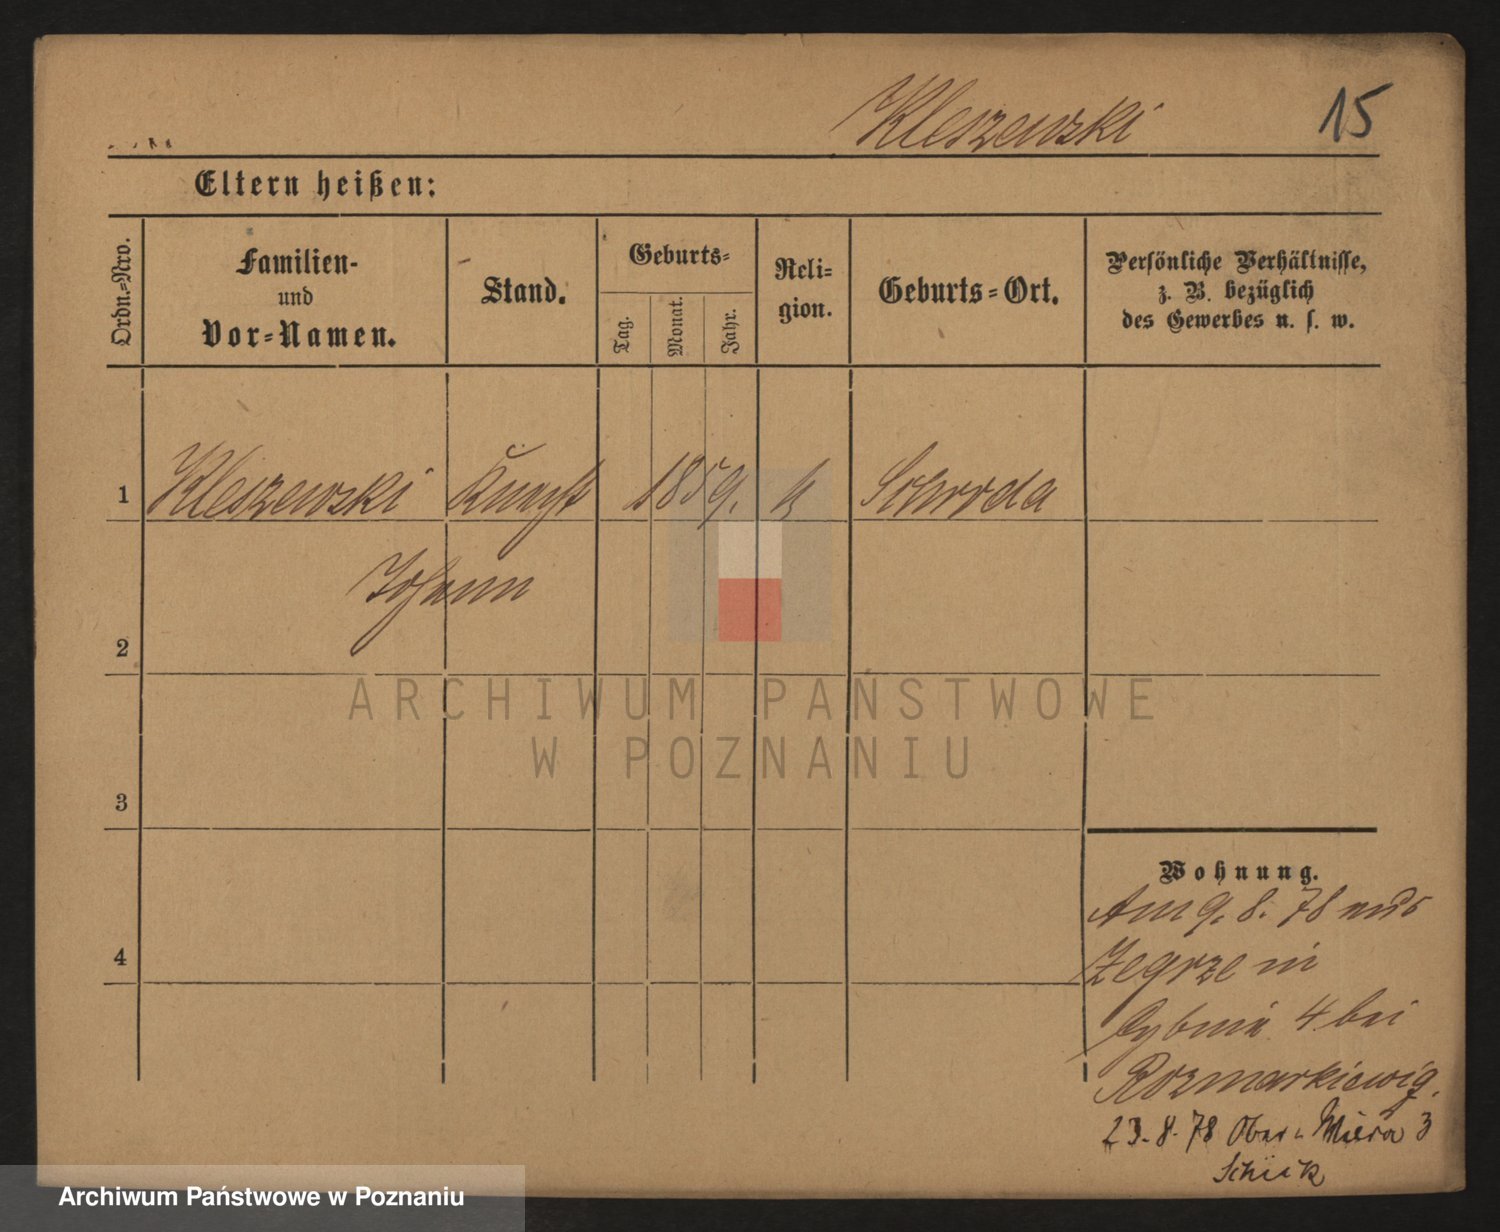 Kleszewski 15
Eltern heißen:
Ordn.-Nro.
Familien-
und
Vor-Namen.
Stand.
Geburts-
Tag.
Monat.
Jahr.
Reli-
gion.
Geburts-Ort.
Persönliche Verhältnisse,
z. B. bezüglich
des Gewerbes u. s. w.
1 Kleszewski 1859. k Schroda
Johann
2
3
4
Wohnung.
Am 9. 8. 78 aus
Zegrze in
4 bei
23. 8. 78 Ober 3
Schick
ARCHIWUM PAŃSTWOWE
W POZNANIU
Archiwum Państwowe w Poznaniu